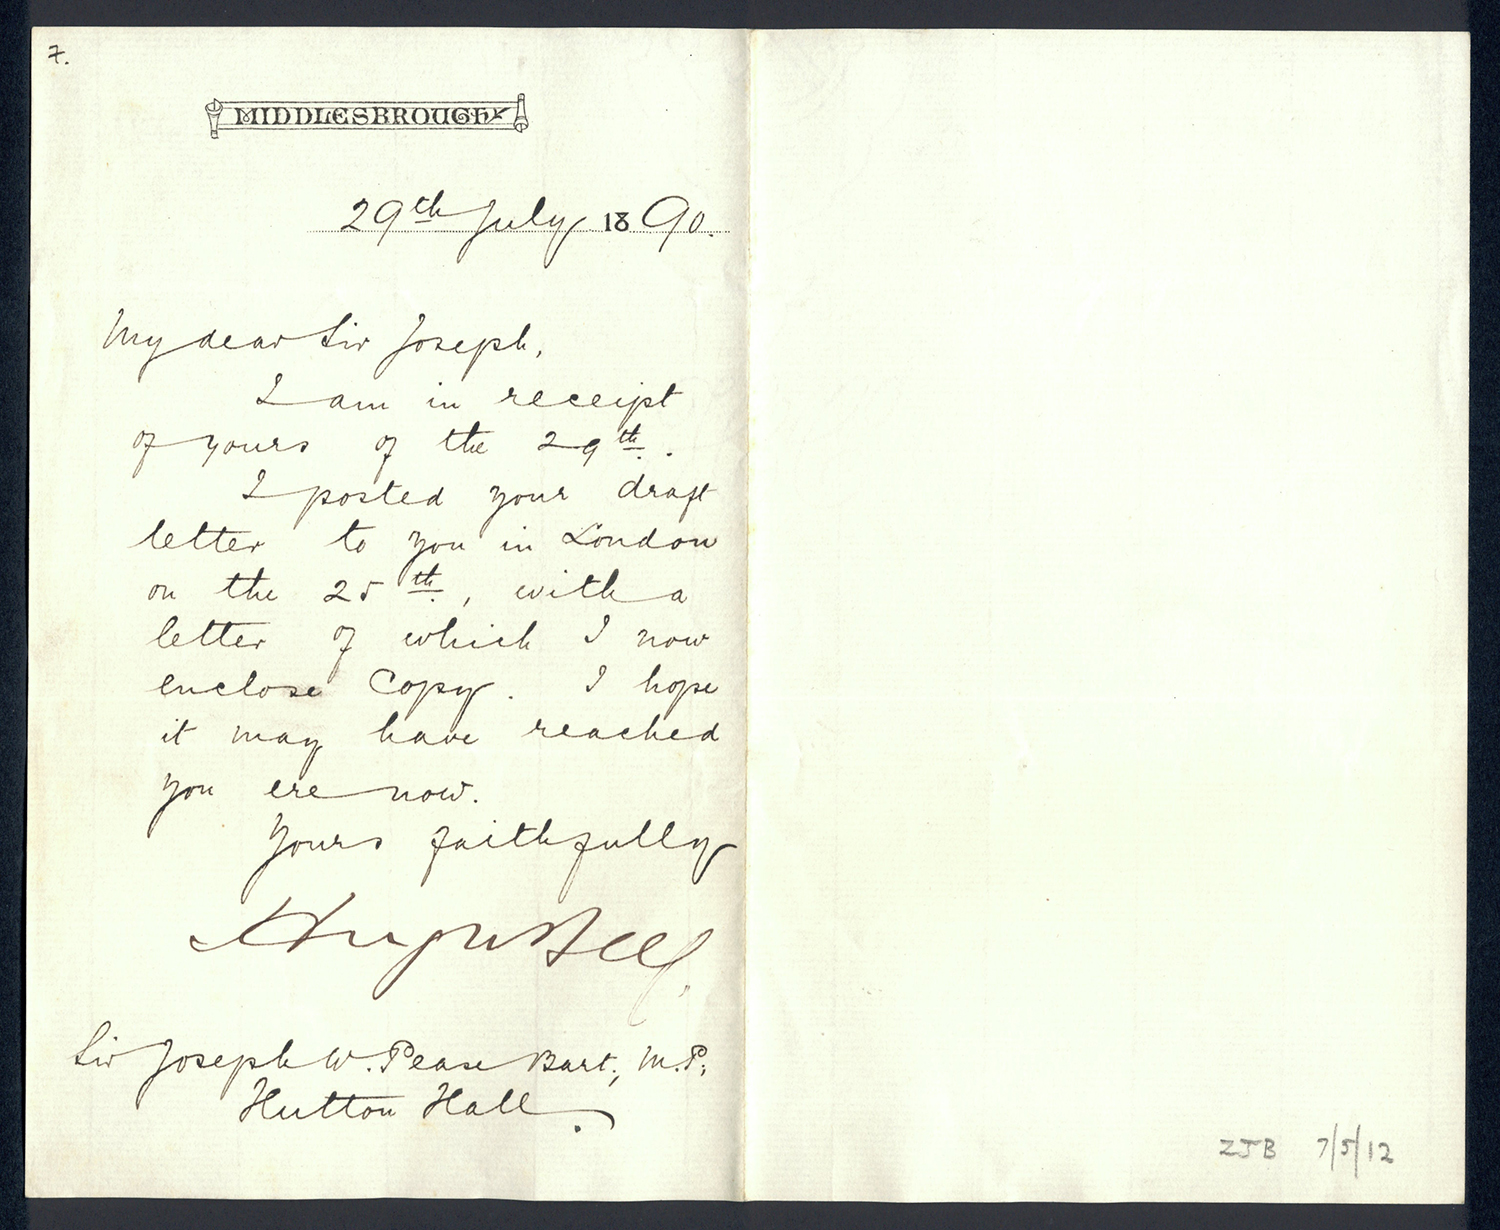 7.
MIDDLESBROUGH
29th July 1890.
My dear Sir Joseph,
I am in receipt
of yours of the 29th.
I posted your draft
letter to you in London
on the 25th, with a
letter of which I now
enclose Copy. I hope
it may have reached
you ere now.
Yours faithfully
Hugh Bell
Sir Joseph W. Pease Bart., M.P.,
Hutton Hall.
ZJB 7/5/12